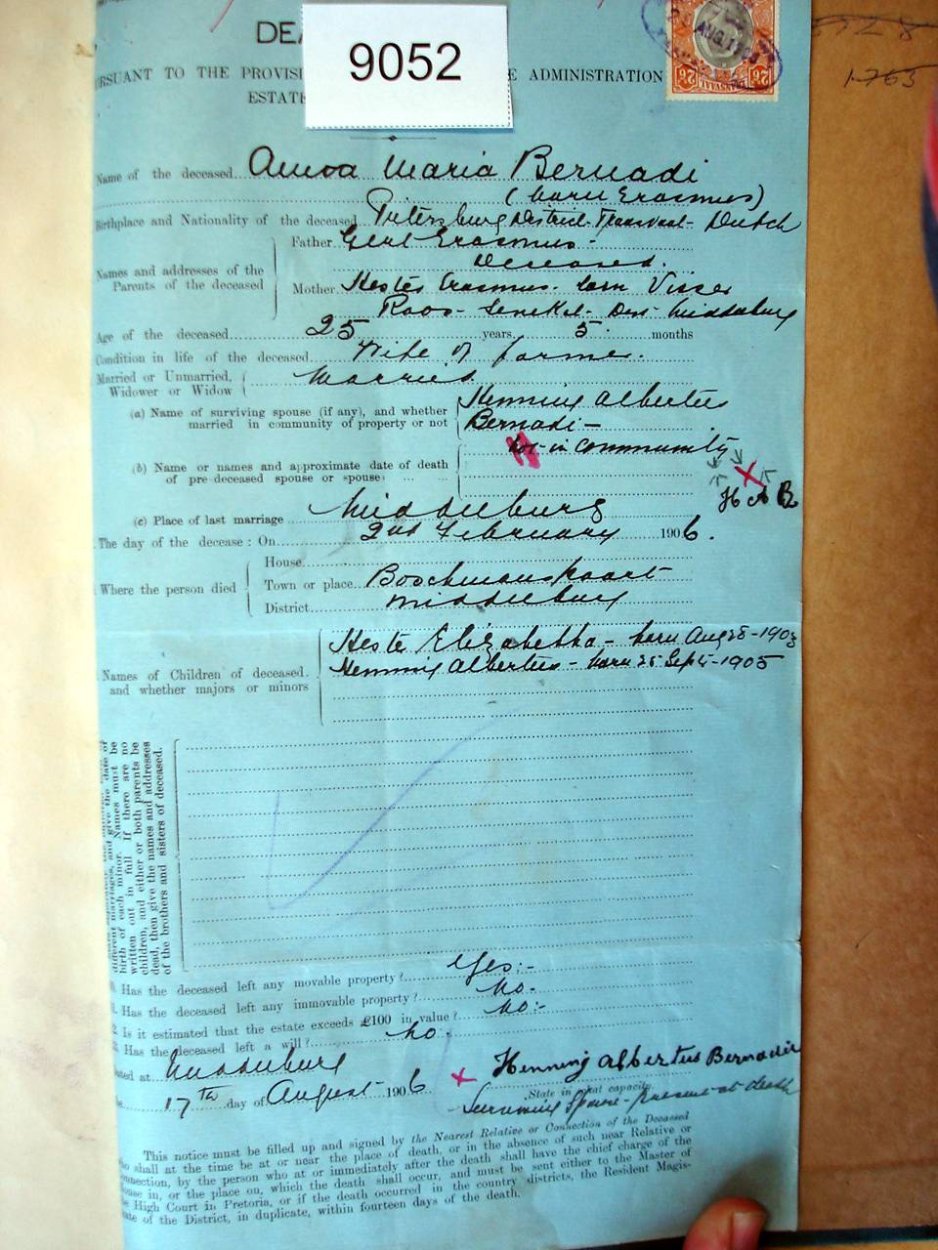 DEA
9052
RSUANT TO THE PROVISI E ADMINISTRATION
ESTATE
AUG
TRANSVAAL
Name of the deceased Anna Maria Bernadi
(born Erasmus)
Birthplace and Nationality of the deceased Pietersburg District Transvaal - Dutch
Names and addresses of the Parents of the deceased
Father Gert Erasmus -
Deceased.
Mother Hester Erasmus - born Visser
Roos - Senekal - Middelburg
Age of the deceased 25 years 5 months
Condition in life of the deceased Wife of farmer.
Married or Unmarried, Widower or Widow Married
(a) Name of surviving spouse (if any), and whether married in community of property or not
Henning Albertus
Bernadi -
in community
H A B
(b) Name or names and approximate date of death of pre-deceased spouse or spouses
(c) Place of last marriage Middelburg
The day of the decease : On 2nd February 1906.
Where the person died
House
Town or place
District Middelburg
Names of Children of deceased and whether majors or minors
Heste Elizabetha - born Aug 28 - 1903
Henning Albertus - born 25 Sept - 1905
different marriages, and give the date of
birth of each minor. Names must be
written out in full. If there are no
children, and either or both parents be
dead, then give the names and addresses
of the brothers and sisters of deceased.
Has the deceased left any movable property ? Yes :-
Has the deceased left any immovable property ? No -
Is it estimated that the estate exceeds £100 in value ? No :-
Has the deceased left a will ? No -
ated at Middelburg
17th day of August 1906
x Henning Albertus Bernadi
State in what capacity.
Surviving Spouse - present at death
This notice must be filled up and signed by the Nearest Relative or Connection of the Deceased
who shall at the time be at or near the place of death, or in the absence of such near Relative or
onnection, by the person who at or immediately after the death shall have the chief charge of the
ouse in, or the place on, which the death shall occur, and must be sent either to the Master of
e High Court in Pretoria, or if the death occurred in the country districts, the Resident Magis-
ate of the District, in duplicate, within fourteen days of the death.